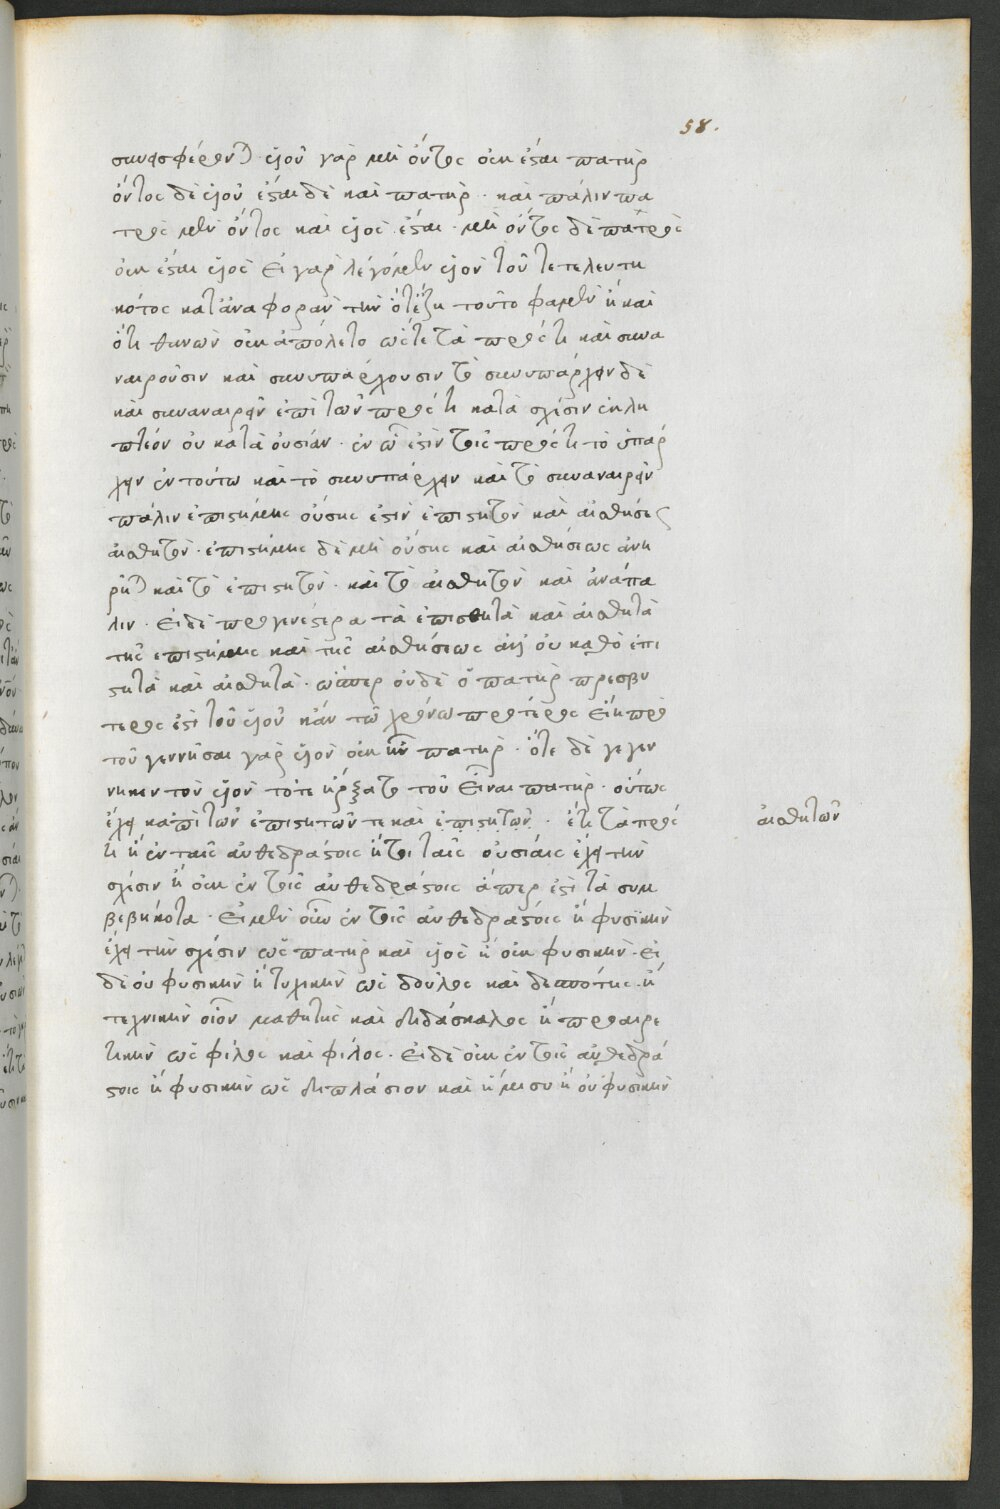 58.
συνεισφέρεται· υἱοῦ γὰρ μὴ ὄντος οὐκ ἔσται πατὴρ
ὄντος δὲ υἱοῦ ἔσται δὲ καὶ πατὴρ· καὶ πάλιν πα
τρὸς μὲν ὄντος καὶ υἱὸς ἔσται· μὴ ὄντος δὲ πατρὸς
οὐκ ἔσται υἱὸς εἰ γὰρ λέγομεν υἱὸν τοῦ τετελευτη
κότος κατ' ἀναφορὰν τὴν ὅτε ἔζη τοῦτο φαμὲν ἢ καὶ
ὅτι θανὼν οὐκ ἀπόλετο ὥστε τὰ πρός τι καὶ συνα
ναιροῦσιν καὶ συνυπάρχουσιν τὸ συνυπάρχειν δὲ
καὶ συναναιρεῖν ἐπὶ τῶν πρός τι κατὰ σχέσιν ἐκλη
πτέον οὐ κατὰ οὐσίαν· ἐν ᾧ ἐστὶν τοῖς πρός τι τὸ ὑπάρ
χειν ἐν τούτω καὶ τὸ συνυπάρχειν καὶ τὸ συναναιρεῖν
πάλιν ἐπιστήμης οὔσης ἐστὶν ἐπιστητὸν καὶ αἰσθήσεως
αἰσθητὸν· ἐπιστήμης δὲ μὴ οὔσης καὶ αἰσθήσεως ἀνή
ρηται καὶ τὸ ἐπιστητὸν· καὶ τὸ αἰσθητὸν καὶ ἀνάπα
λιν· εἰ δὲ προγενέστερα τὰ ἐπιστητὰ καὶ αἰσθητὰ
τῆς ἐπιστήμης καὶ τῆς αἰσθήσεως ἀλλ' οὐ καθὸ ἐπι
στητὰ καὶ αἰσθητὰ· ὥσπερ οὐδὲ ὁ πατὴρ πρεσβυ
τερός ἐστι τοῦ υἱοῦ κἂν τῶ χρόνω πρότερος εἴη πρὸ
τοῦ γεννῆσαι γὰρ υἱὸν οὐκ ἦν πατὴρ· ὅτε δὲ γεγεν
νηκεν τὸν υἱὸν τότε ἤρξατο τοῦ εἶναι πατὴρ· οὕτως
ἔχει κἀπὶ τῶν ἐπιστητῶν τε καὶ ἐπιστητῶν· ἔτι τὰ πρός
αἰσθητῶν
τι ἢ ἐν ταῖς αὐθεδράστοις ἤτοι ταῖς οὐσίαις ἔχει τὴν
σχέσιν ἢ οὐκ ἐν τοῖς αὐθεδράστοις ἅπερ ἐστὶ τὰ συμ
βεβηκότα· εἰ μὲν οὖν ἐν τοῖς αὐθεδράστοις ἢ φυσικὴν
ἔχει τὴν σχέσιν ὡς πατὴρ καὶ υἱὸς ἢ οὐκ φυσικὴν· εἰ
δὲ οὐ φυσικὴν ἢ τυχικὴν ὡς δοῦλος καὶ δεσπότης· ἢ
τεχνικὴν οἷον μαθητὴς καὶ διδάσκαλος ἢ προαιρε
τικὴν ὡς φίλος καὶ φίλος· εἰ δὲ οὐκ ἐν τοῖς αὐθεδρά
στοις ἢ φυσικὴν ὡς διπλάσιον καὶ ἥμισυ ἢ οὐ φυσικὴν